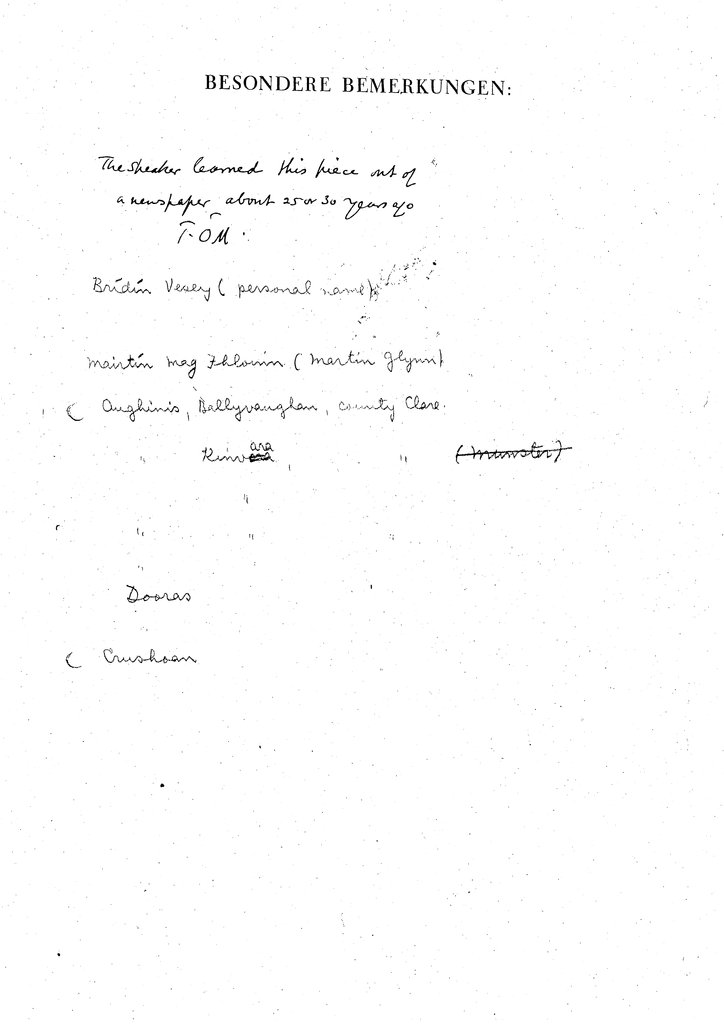 BESONDERE BEMERKUNGEN:
The speaker learned this piece out of
a newspaper about 25 or 30 years ago
T. ÓM.
Brídín Vesey ( personal name )
Máirtín Mag Fhloinn ( Martin Glynn)
( Aughinis, Ballyvaughan, county Clare.
" Kinvara, " (Munster)
"
" " "
"
Dooras
( Crushoan